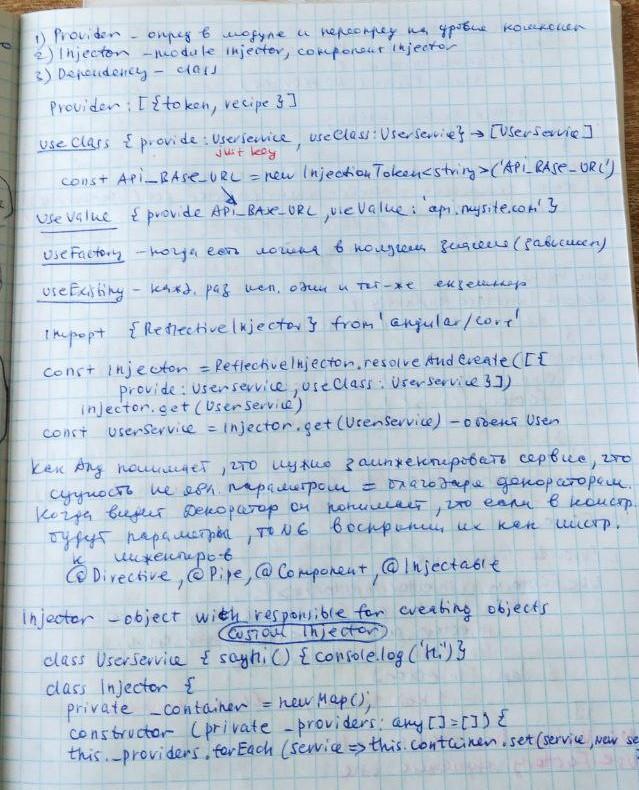 1) Provider – опред в модуле и переопред на уровне компонен
2) Injector – module injector, component injector
3) Dependency – class
Provider: [{token, recipe}]
useClass {provide: Userservice, useClass: UserService} → [UserService]
just key
const API_BASE_URL = new InjectionToken<string>('API_BASE_URL')
useValue {provide API_BASE_URL, useValue: 'api.mysite.com'}
useFactory – когда есть логика в получен значение (зависимос)
useExisting – кажд. раз исп. один и тот-же екземпляр
import {ReflectiveInjector} from 'angular/core'
const injector = ReflectiveInjector.resolveAndCreate([{
provide: Userservice, useClass: UserService}])
injector.get(UserService)
const userService = injector.get(UserService) – объект User
Как Ang понимает, что нужно заинжектировать сервис, что
сущность не явл. параметром = благодаря декораторам.
Когда видит декоратор он понимает, что если в констр.
будут параметры, то NG воспримет их как инстр.
к инжектиров
@Directive, @Pipe, @Component, @Injectable
Injector – object with responsible for creating objects
Custom Injector
class UserService { sayHi() { console.log('Hi')}
class Injector {
private _container = new Map();
constructor (private _providers: any[] = []) {
this._providers.forEach (service => this.container.set(service, new se